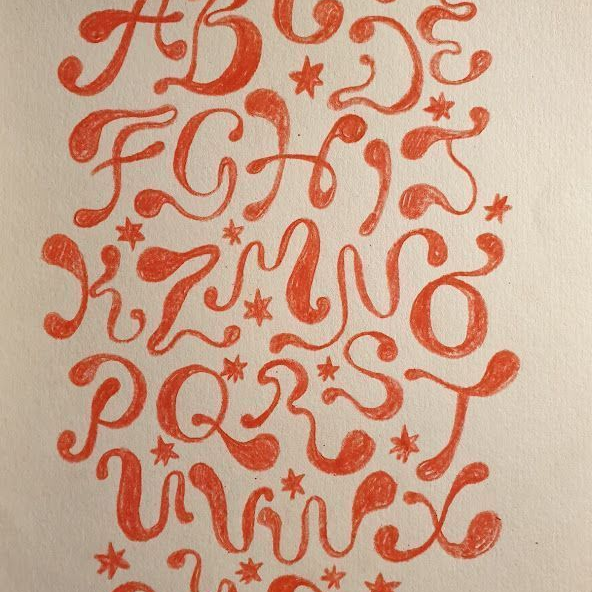 A B C D E
F G H I J
K L M N O
P Q R S T
U V W X